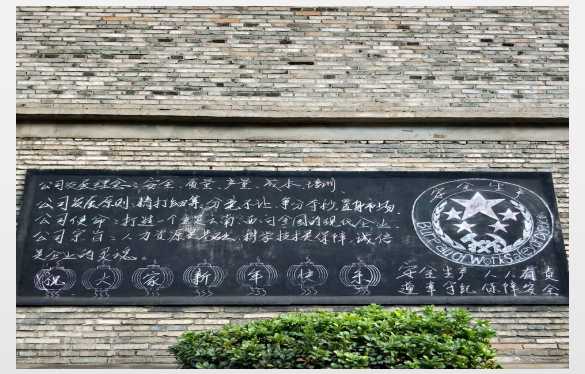 公司发展理念：安全、质量、产量、成本、培训
公司发展原则：精打细算、分毫不让、争分夺秒、置身市场。
公司使命：打造一个立足云南、面向全国的现代企业
公司宗旨：人力资源是基础、科学技术是保障、诚信
是企业的灵魂。
祝大家新年快乐
安全生产
Bureau of Works
安全生产 人人有责
遵章守纪 保障安全